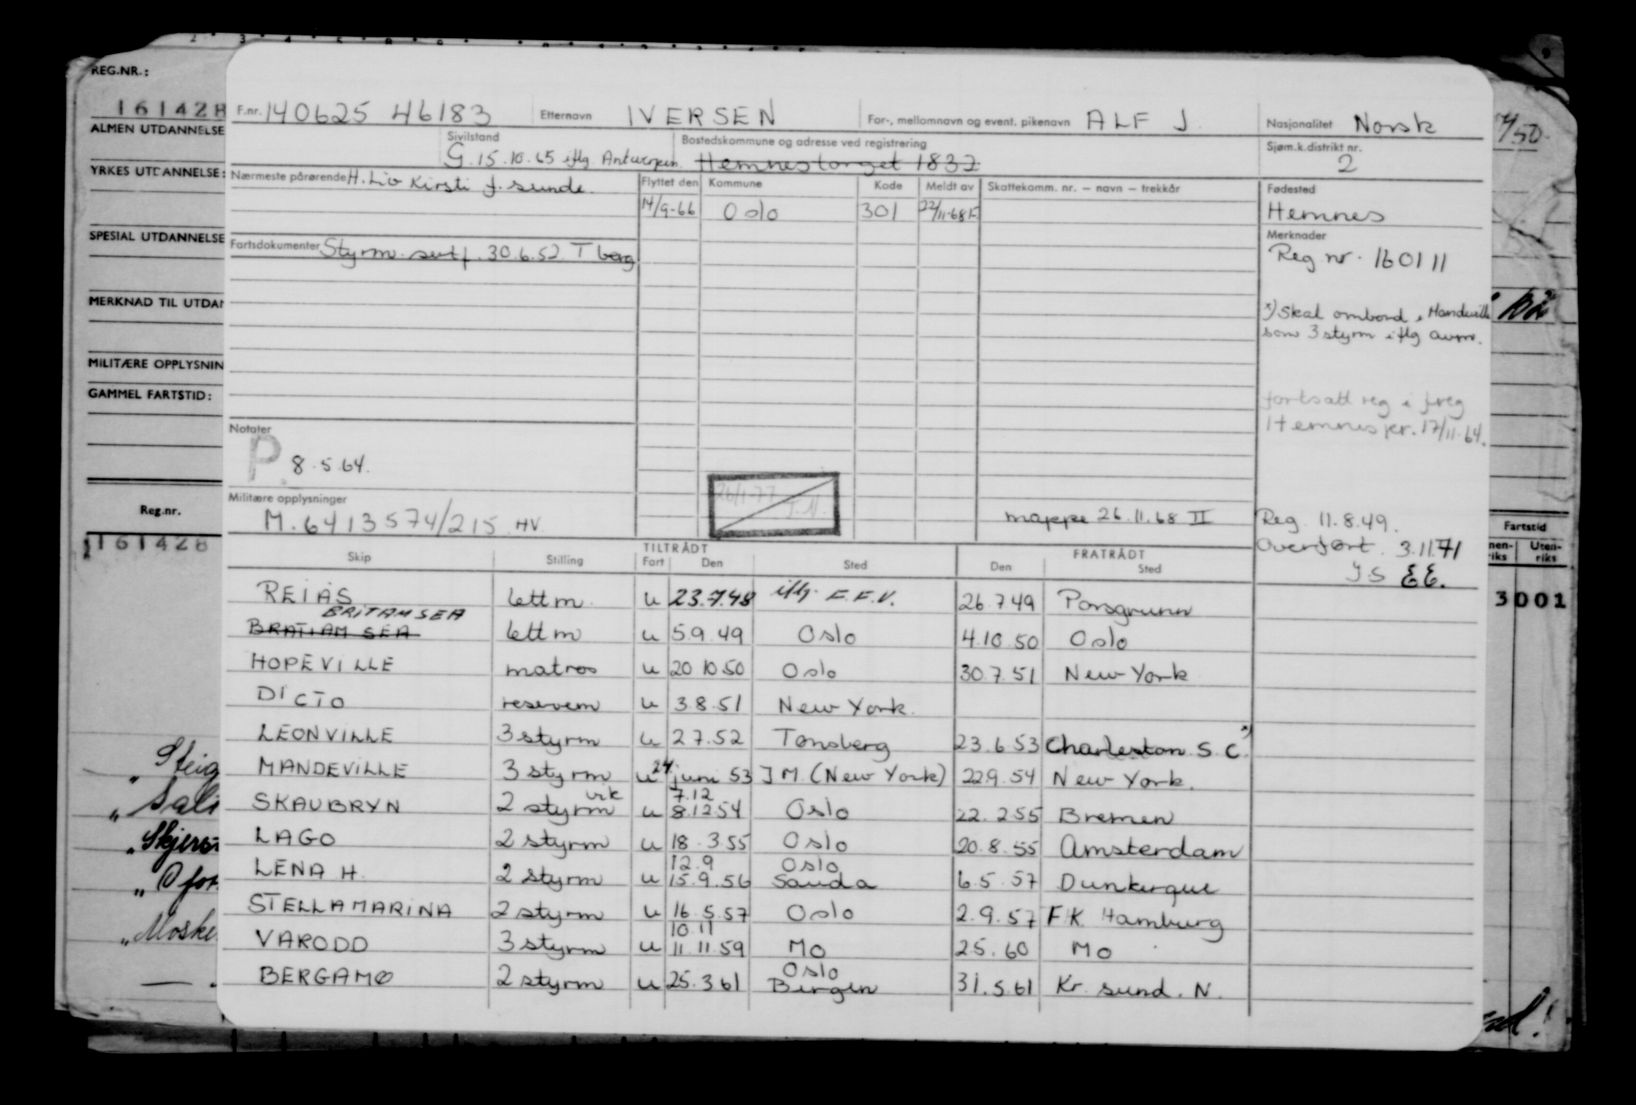 REG.NR.:
161428
ALMEN UTDANNELSE
YRKES UTDANNELSE:
SPESIAL UTDANNELSE
MERKNAD TIL UTDAN
MILITÆRE OPPLYSNIN
GAMMEL FARTSTID:
Reg.nr.
161428
F.nr. 140625 46183 Etternavn IVERSEN For-, mellomnavn og event. pikenavn ALF J. Nasjonalitet Norsk
Sivilstand Bostedskommune og adresse ved registrering Sjøm.k.distrikt nr.
G. 15.10.65 iflg. Antwerpen. Hemnestorget 1832 2
Nærmeste pårørende H. Liv Kirsti f. Sunde. Flyttet den Kommune Kode Meldt av Skattekomm. nr. – navn – trekkår Fødested
14/9-66 Oslo 301 Hemnes
Fartsdokumenter Styrm. sertf. 30.6.52 T berg Merknader
Reg nr. 160111
x) Skal ombord i Mandeville
som 3 styrm iflg avm.
fortsatt reg i freg
Hemnes pr. 17/11-64.
Notater
P 8.5.64.
26/1-77
Militære opplysninger
M. 6413574/215 HV. mappe 26.11.68 II Reg. 11.8.49.
Overført. 3.11.71
JS EE.
Fartstid
nen-riks Uten-riks
3001
TILTRÅDT FRATRÅDT
Skip Stilling Fart Den Sted Den Sted
REIAS lettm. u 23.7.48 iflg. F.F.V. 26.7.49 Porsgrunn
BRITAMSEA
BRATIAM SEA lettm u 5.9.49 Oslo 4.10.50 Oslo
HOPEVILLE matros u 20.10.50 Oslo 30.7.51 New York
DICTO reservem u 3.8.51 New York.
LEONVILLE 3 styrm u 2.7.52 Tønsberg 23.6.53 Charleston S.C. x)
MANDEVILLE 3 styrm u 24 juni 53 J M. (New York) 22.9.54 New York.
vik 7.12
SKAUBRYN 2 styrm u 8.12.54 Oslo 22.2.55 Bremen
LAGO 2 styrm u 18.3.55 Oslo 20.8.55 Amsterdam
12.9 Oslo
LENA H. 2 styrm u 15.9.56 Sauda 6.5.57 Dunkerque
STELLAMARINA 2 styrm u 16.5.57 Oslo 2.9.57 F.K. Hamburg
10.11
VARODD 3 styrm u 11.11.59 Mo 2.5.60 Mo
Oslo
BERGAMO 2 styrm u 25.3.61 Bergen 31.5.61 Kr. sund. N.